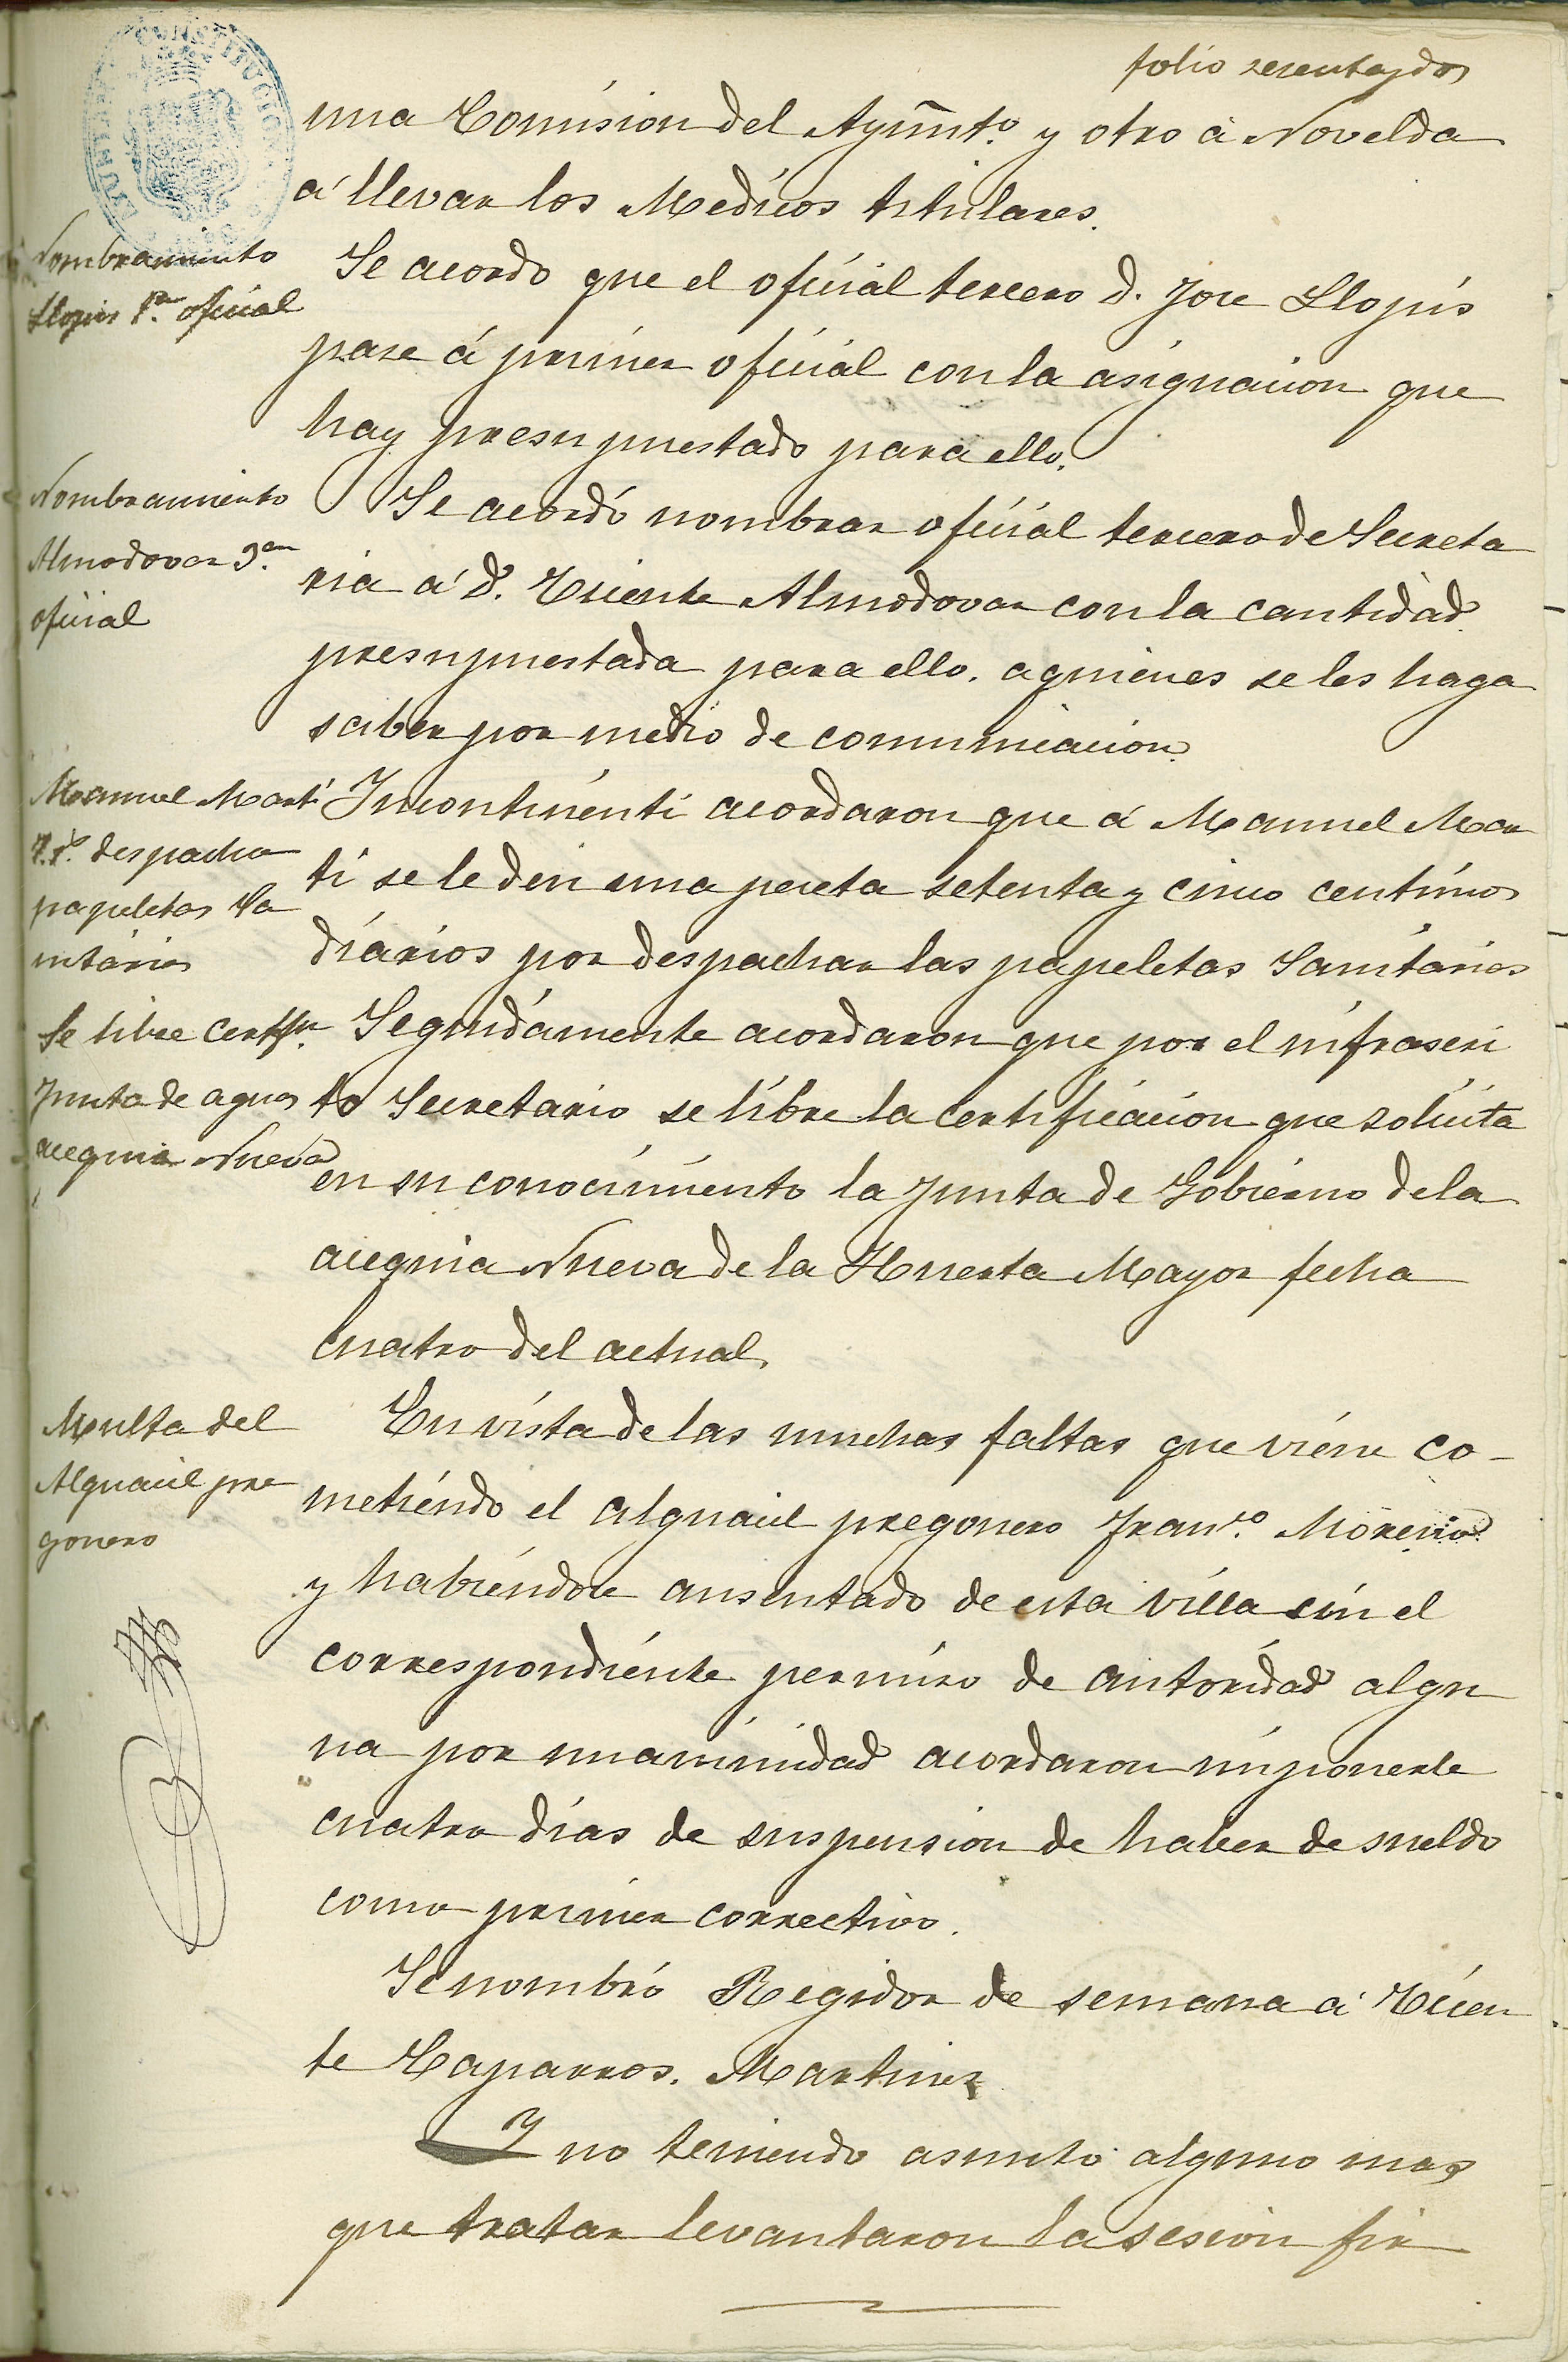 folio sesentaydos
una Comision del Ayunto. y otro á Novelda
á llevar los Medicos titulares.
Nombramiento
Llopis 1er. oficial
Se acordo que el oficial tercero D. Jose Llopis
pase á primer oficial con la asignacion que
hay presupuestado para ello.
Nombramiento
Almodovar 3er.
oficial
Se acordó nombrar oficial tercero de Secreta
ria á D. Vicente Almodovar con la cantidad
presupuestada para ello. aquienes se les haga
saber por medio de comunicacion.
Manuel Marti
despacha
papeletas Sa
nitarias
Incontinenti acordaron que á Manuel Mar
ti se le den una peseta setenta y cinco centimos
diarios por despachar las papeletas Sanitarias
Se libre certifn.
Junta de aguas
acequia Nueva
Seguidamente acordaron que por el infrascri
to Secretario se libre la certificacion que solicita
en su conocimiento la Junta de Gobierno dela
acequia Nueva de la Huerta Mayor fecha
cuatro del actual.
Multa del
Alguacil pre
gonero
En vista de las muchas faltas que viene co-
metiendo el alguacil pregonero Franco. Moreno
y habiendose ausentado de esta villa sin el
correspondiente permiso de autoridad algu
na por unanimidad acordaron imponerle
cuatro dias de suspension de haber de sueldo
como primer correctivo.
Se nombró Regidor de semana á Vicen
te Caparros. Martinez
Y no teniendo asunto alguno mas
que tratar levantaron la sesion fir